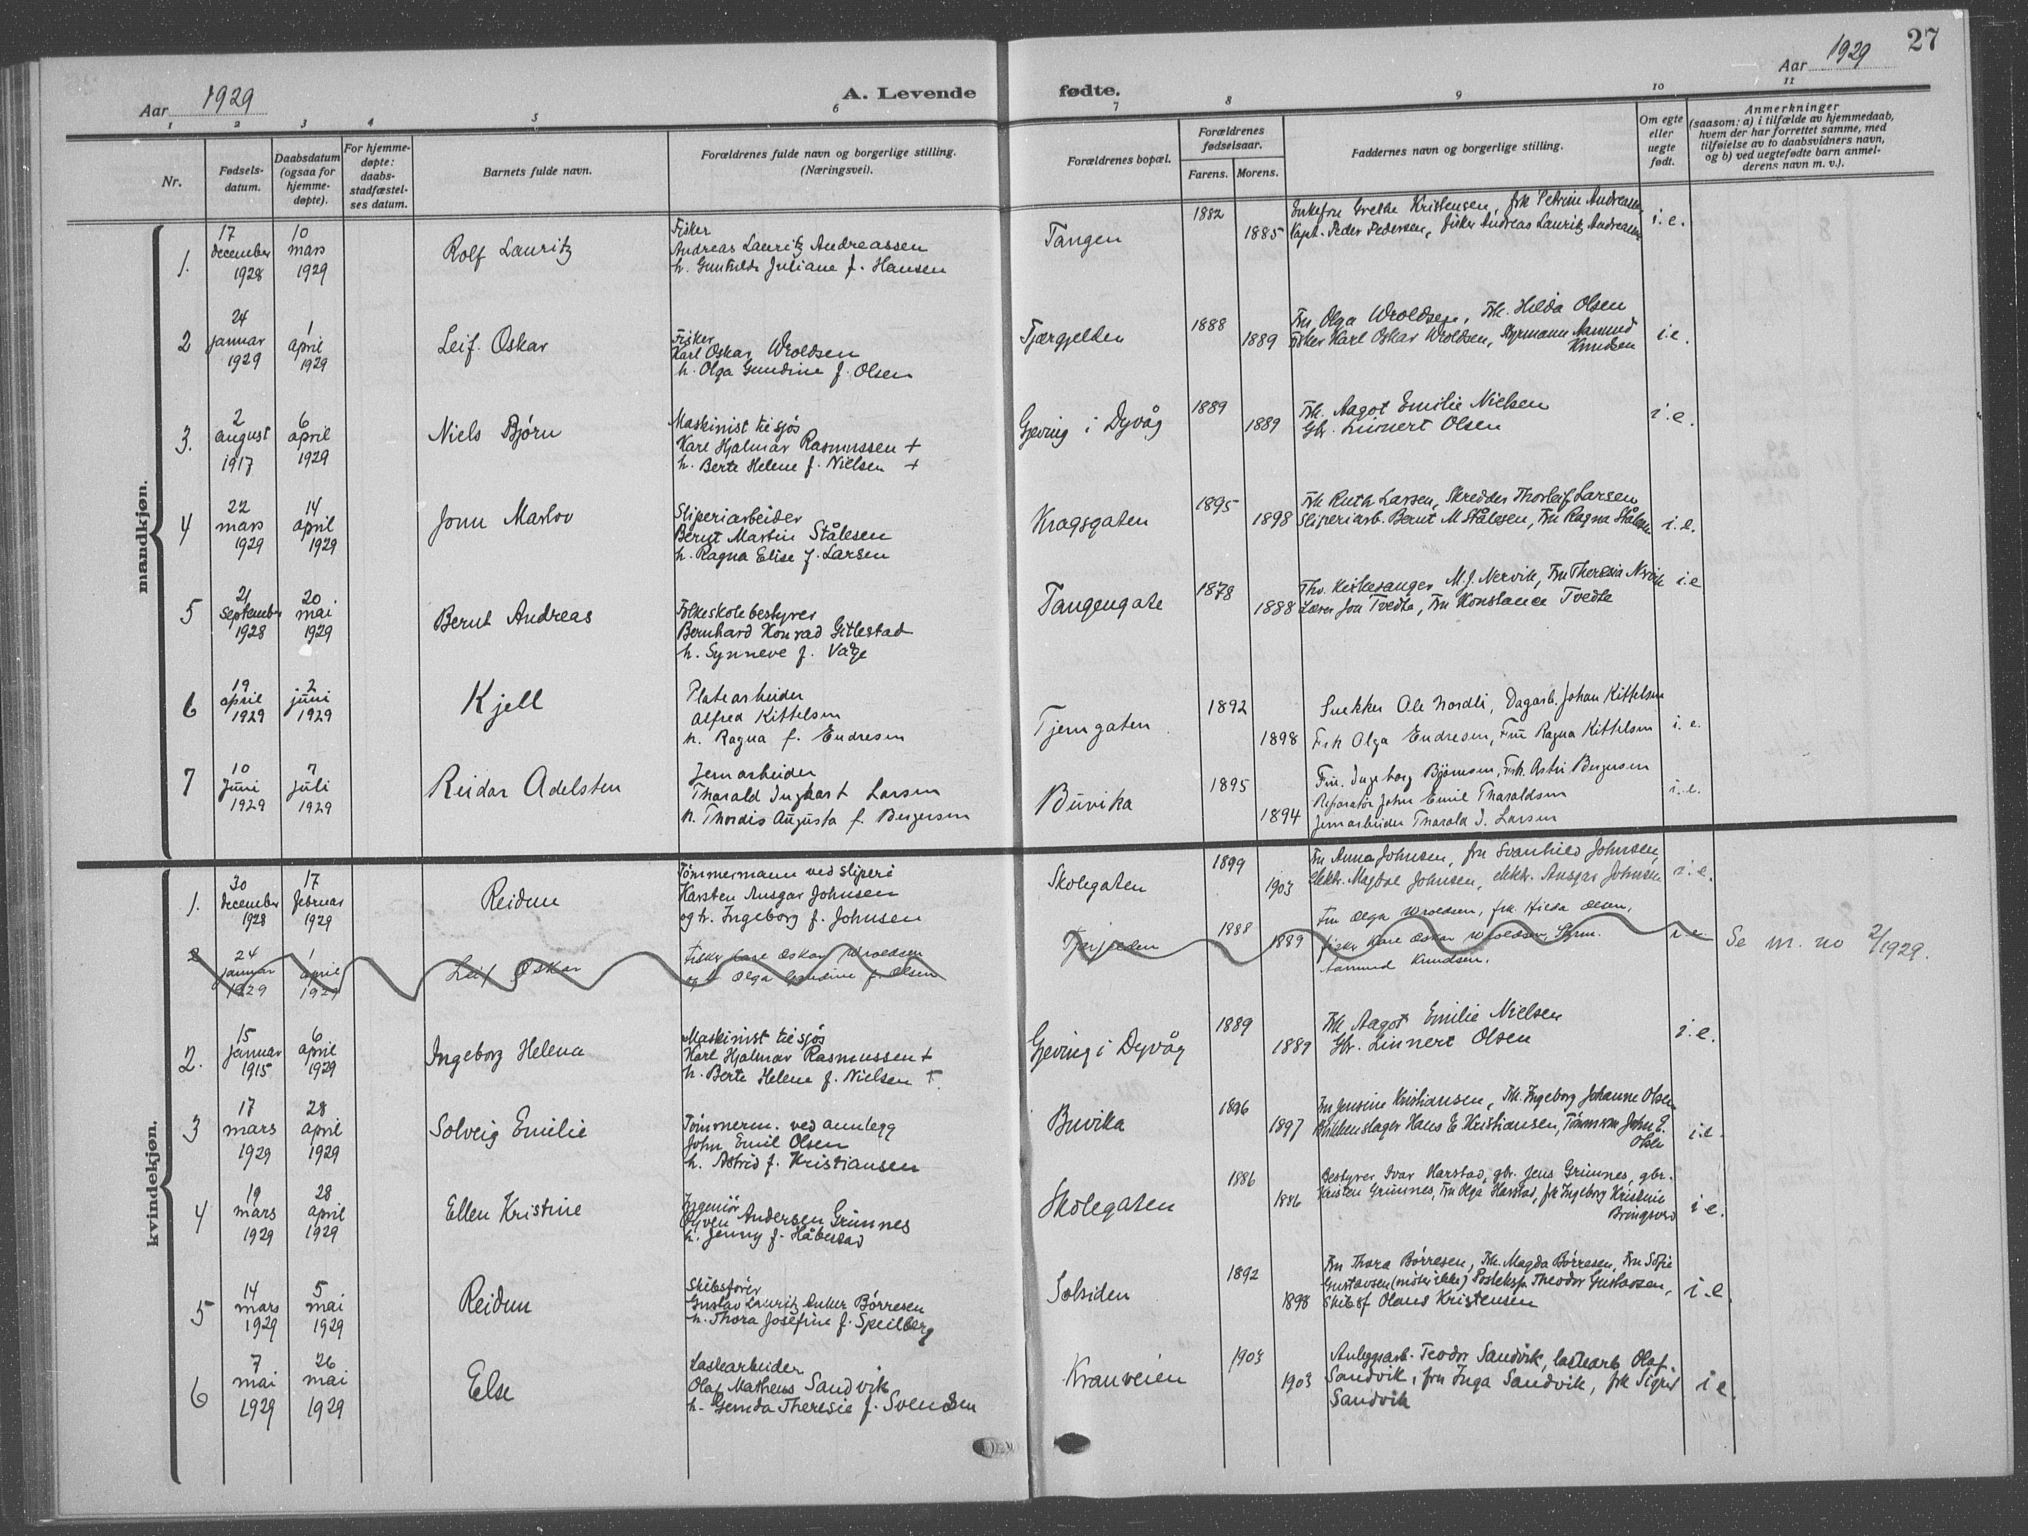 27
Aar 1929
A. Levende fødte.
Aar 1929
1 2 3 4 5 6 7 8 9 10 11
Nr.
Fødsels-
datum.
Daabsdatum
(ogsaa for
hjemme-
døpte).
For hjemme-
døpte:
daabs-
stadfæstel-
ses datum.
Barnets fulde navn.
Forældrenes fulde navn og borgerlige stilling.
(Næringsvei).
Forældrenes bopæl.
Forældrenes
fødselsaar.
Farens. Morens.
Faddernes navn og borgerlige stilling.
Om egte
eller
uegte
født.
Anmerkninger
(saasom: a) i tilfælde av hjemmedaab,
hvem der har forrettet samme, med
tilføielse av to daabsvidners navn,
og b) ved uegtefødte barn anmel-
derens navn m. v.).
mandkjøn.
1.
17
december
1928
10
mars
1929
Rolf Lauritz
Fisker
Andreas Lauritz Andreassen
h. Gunhilde Juliane f. Hansen
Tangen
1882
1885
Enkefru Grethe Kristensen, frk Petrine Andreasen
Kapt. Peder Pedersen, fisker Andreas Lauritz Andreasen
i.e.
2
24
januar
1929
1
april
1929
Leif Oskar
Fisker
Karl Oskar Wroldsen
h. Olga Gundine f. Olsen
Tjærgjelden
1888
1889
Fru Olga Wroldsen, Frk. Hilda Olsen
Fisker Karl Oskar Wroldsen, Styrmann Aamund
Knudsen
i.e.
3.
2
august
1917
6
april
1929
Niels Bjørn
Maskinist tilsjøs
Karl Hjalmar Rasmussen +
h. Berte Helene f. Nielsen +
Gjeving i Dyvåg
1889
1889
Frk. Aagot Emilie Nielsen
Gbr. Linnert Olsen
i.e.
4
22
mars
1929
14
april
1929
John Marlov
Sliperiarbeider
Bernt Martin Stålesen
h. Ragna Elise f. Larsen
Kragsgaten
1895
1898
Frk Ruth Larsen, Skredder Thorleif Larsen
Sliperiarb. Bernt M Stålesen, Fru Ragna Stålesen
i.e.
5
21
September
1928
20
mai
1929
Bernt Andreas
Folkeskolebestyrer
Bernhard Konrad Gitlestad
h. Synneve f. Våge
Tangengate
1878
1888
Thv. Kirkesanger M.J. Nervik, Fru Theresia Nervik
Lærer Jon Tvedte, Fru Konstance Tvedte
i.e
6
19
april
1929
2
juni
1929
Kjell
Platearbeider
Alfred Kittelsen
h. Ragna f. Endresen
Tjerngaten
1892
1898
Snekker Ole Nordli, Dagarb. Johan Kittelsen
Frk Olga Endresen, Fru Ragna Kittelsen
i.e.
7
10
Juni
1929
7
juli
1929
Reidar Adelsten
Jernarbeider
Tharald Ingvart Larsen
h. Thordis Augusta f. Bergersen
Buvika
1895
1894
Fru. Ingeborg Bjørnsen, Frk. Astri Bergersen
Reparatør John Emil Tharaldsen
Jernarbeider Tharald I. Larsen
i.e.
kvindekjøn.
1.
30
december
1928
17
februar
1929
Reidun
Tømmermann ved sliperi
Karsten Ansgar Johnsen
og h. Ingeborg f. Johnsen
Skolegaten
1899
1903
Fru Anna Johnsen, fru Svanhild Johnsen,
elektr. Magdal Johnsen, elektr. Ansgar Johnsen
i.e.
2
24
januar
1929
1
april
1929
Leif Oskar
Fisker Karl Oskar Wroldsen
og h. Olga Gundine f. Olsen
Tjærjelden
1888
1889
Fru Olga Wroldsen, frk. Hilda Olsen,
fisker Karl Oskar Wroldsen, Styrm.
Aamund Knudsen.
i.e.
Se m. no 2/1929.
2.
15
januar
1915
6
april
1929
Ingeborg Helena
Maskinist tilsjøs
Karl Hjalmar Rasmussen +
h. Berte Helene f. Nielsen +.
Gjeving i Dyvåg
1889
1889
Frk. Aagot Emilie Nielsen
Gbr. Linnert Olsen
i.e.
3
17
mars
1929
28
april
1929
Solveig Emilie
Tømmerm. ved anlegg
John Emil Olsen
h. Astrid f. Kristiansen
Buvika
1896
1897
Fru Jensine Kristiansen, Frk. Ingeborg Johanne Olsen
Blikkenslager Hans E Kristiansen, Tømmerm John E.
Olsen
i.e.
4
19
mars
1929
28
april
1929
Ellen Kristine
Ingeniør
Øyven Andersen Grimnes
h. Jenny f. Håbestad
Skolegaten
1886
1886
Bestyrer Ivar Harstad, gbr. Jens Grimnes, gbr.
Kristen Grimnes, Fru Olga Harstad, frk Ingeborg Kristine
Bringsverd
i e.
5
14
mars
1929
5
mai
1929
Reidun
Skibsfører
Gustav Lauritz Anker Børresen
h. Thora Josefine f. Speilberg
Solsiden
1892
1898
Fru Thora Børresen, Frk. Magda Børresen, Fru Sofie
Gustavsen (møter ikke) Posteksp. Theodor Gustavsen,
Skibsf Olaus Kristensen
i.e.
6
7
mai
1929
26
mai
1929
Else
Lastearbeider
Olaf Matheus Sandvik
h. Gemda Theresie f. Svendsen
Kranveien
1903
1903
Anleggsarb. Teodor Sandvik, lastearb Olaf
Sandvik, fru Inga Sandvik, frk Sigrid
Sandvik
i e.